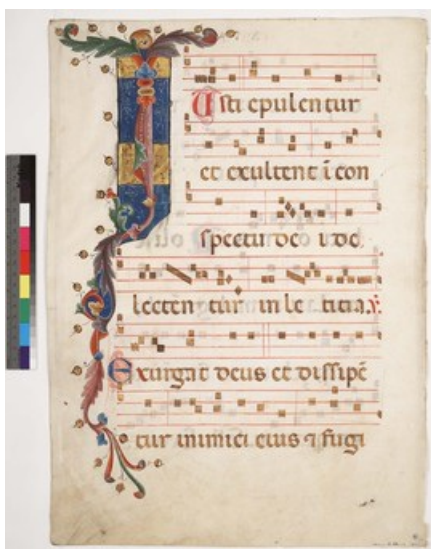 Iusti epulentur
et exultent ī con
spectu dei i de
lecten tur in le titia. ℣.
Exurgat deus et dissipē
tur inimici eius ⁊ fugi